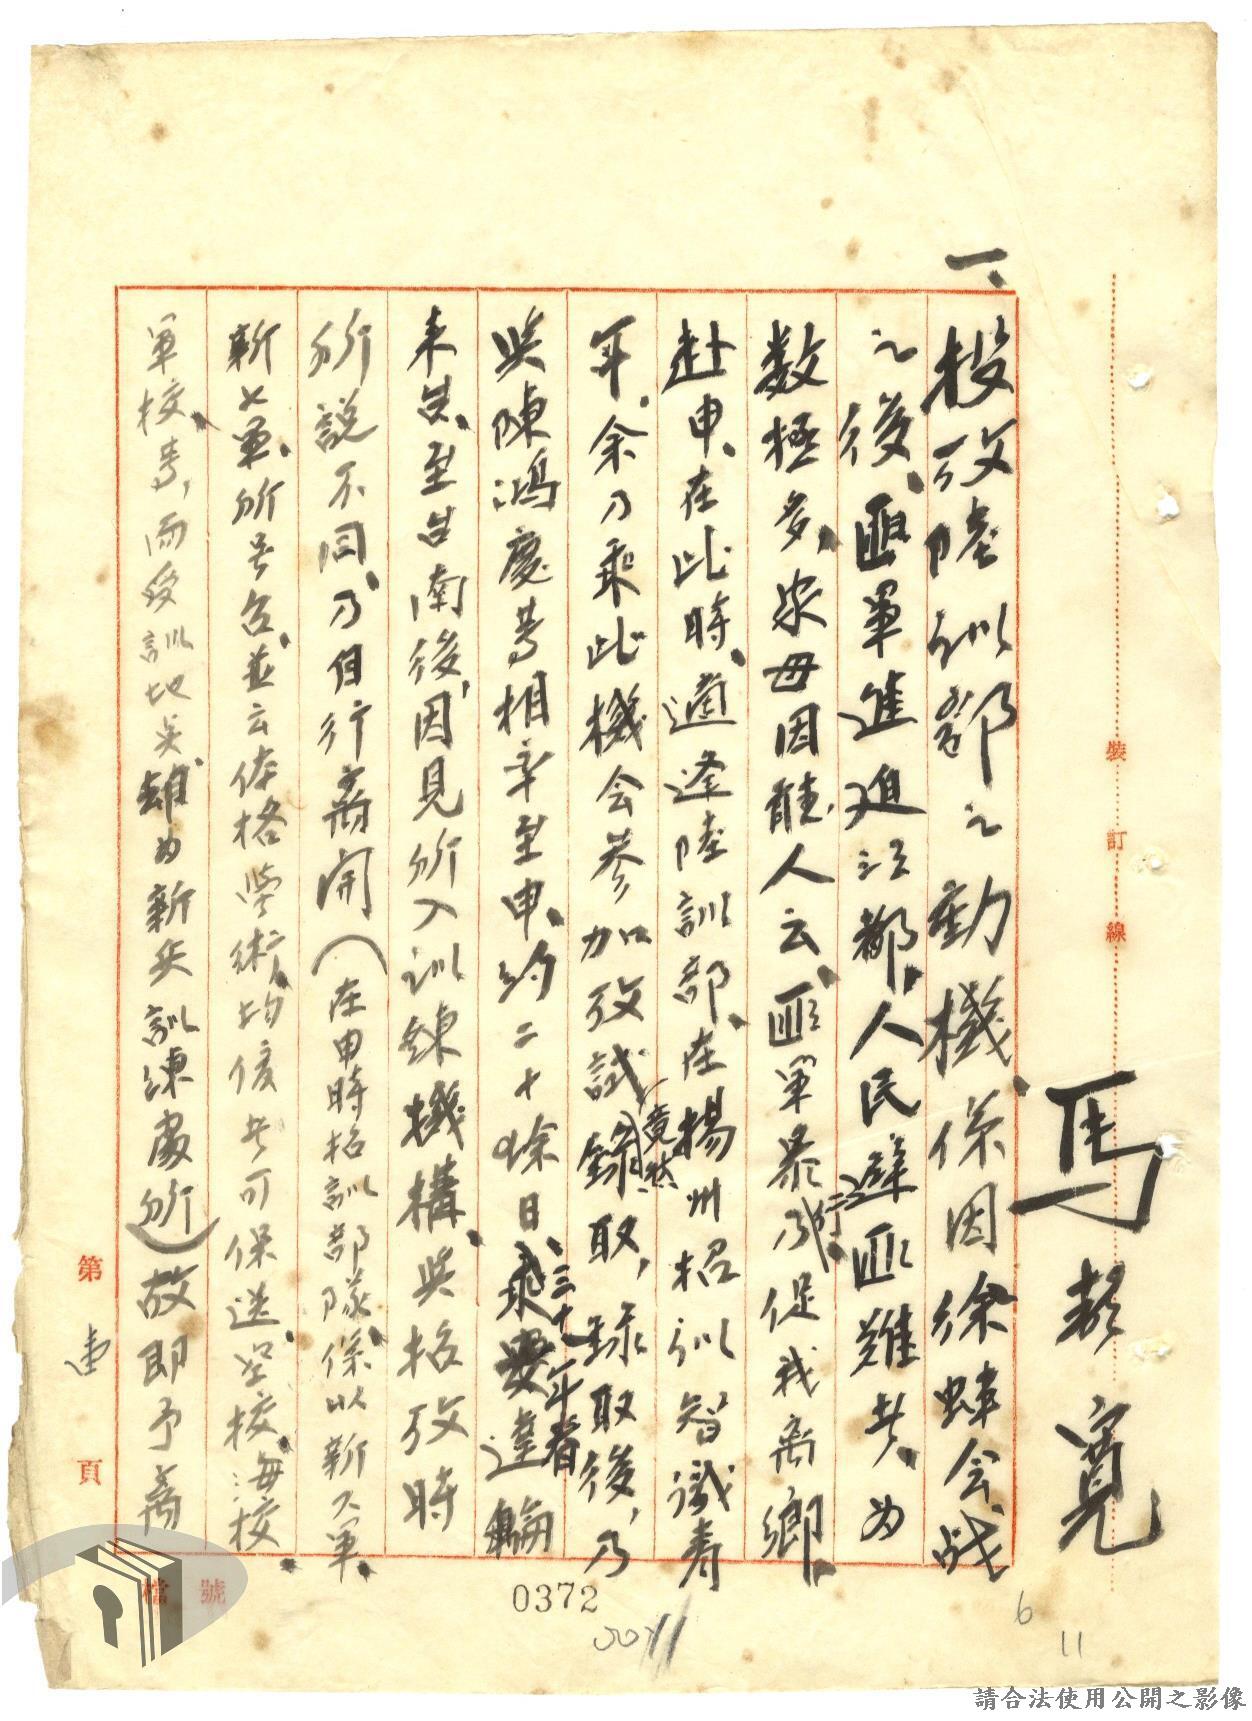 馬 寬
一、
投攷陸訓部之動機係因徐蚌会战
之後、匪軍進迫江都、人民避匪难者、为
数極多、家母因聽人云、匪軍暴行、乃促我离鄉、
赴申、在此時、適逢陸訓部、在揚州招訓智識青
年、余乃乘此機会参加攷試、竟然錄取,錄取後,乃
與陳鴻慶等相率至申、约二十餘日、三十八年春乘安達輪
來台、至台南後,因見所入訓練機構、與招攷時
所說不同、乃自行离開(在申時招訓部隊係以新人軍、
新七軍、所号召、並云体格學術、均優者可保送空校、海校、
軍校等,而受訓地点却为新兵訓練處所)故即予离
裝
訂
線
第
頁
檔號
0372
6
11
請合法使用公開之影像